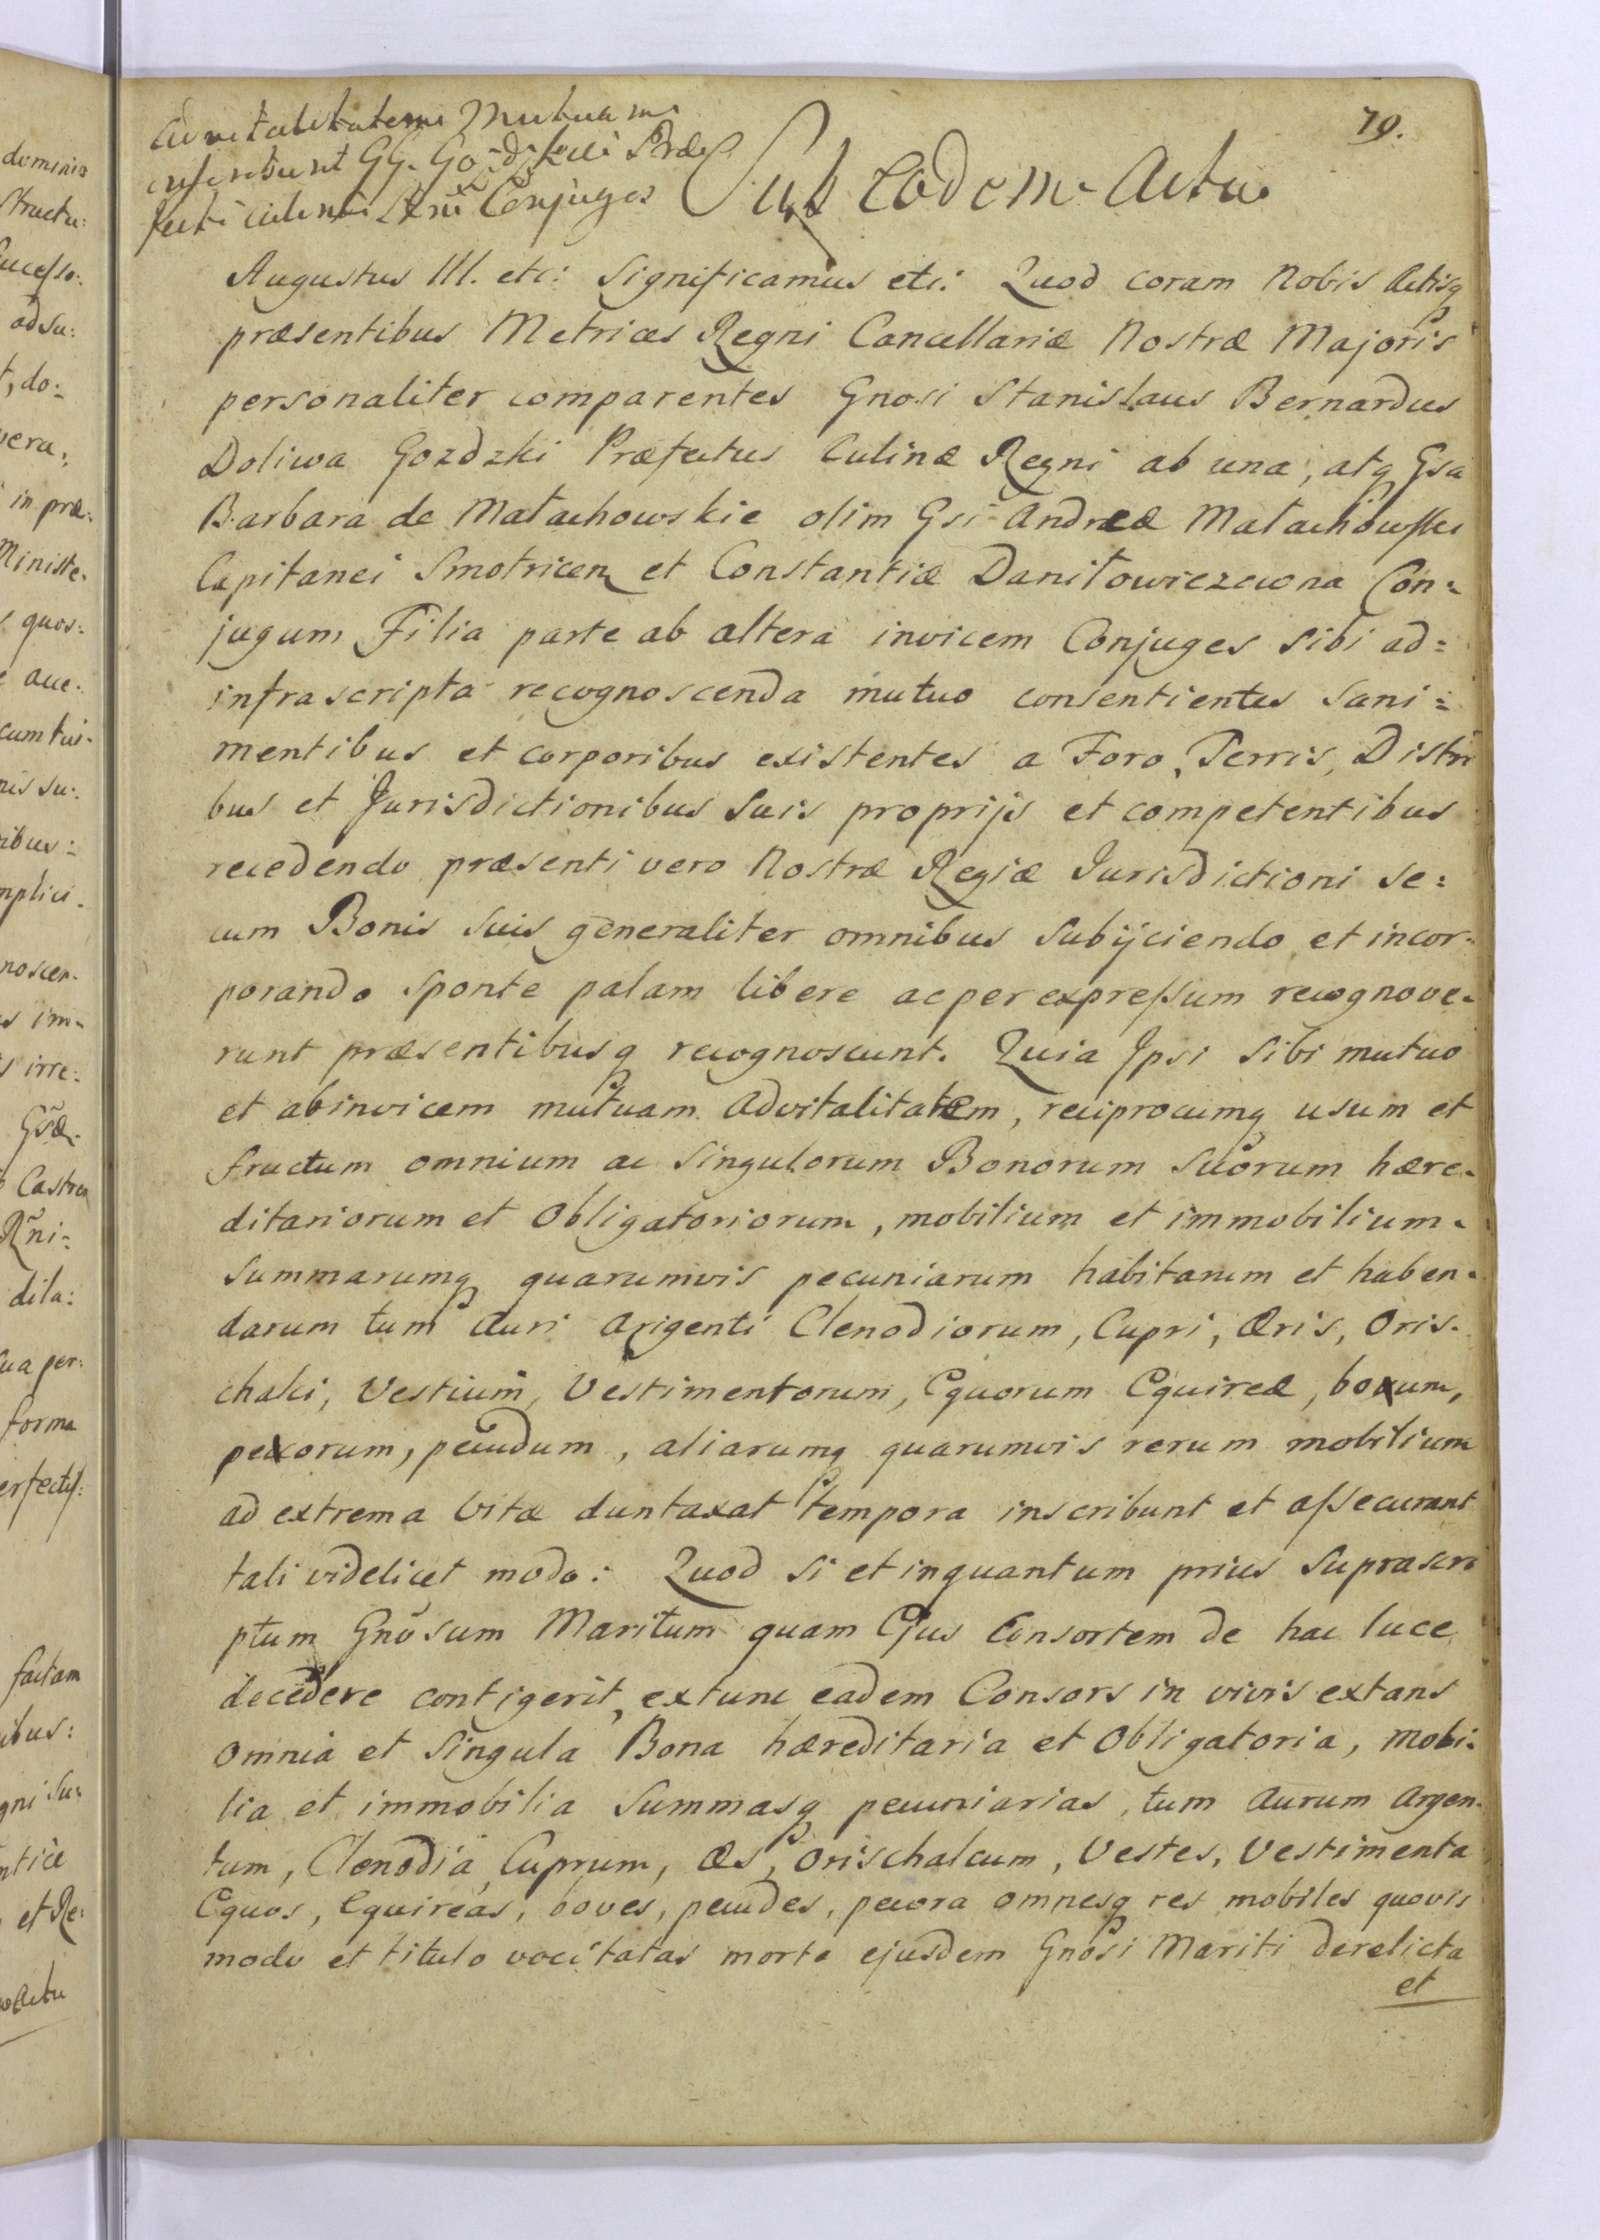 79.
Advitalitatem Mutuam
inscribunt GG. Gozdzkii Præ
fecti culinæ Rni Conjuges
Sub eodem Actu
Augustus III. etc: Significamus etc: Quod coram Nobis Actisq
præsentibus Metrices Regni Cancellariæ Nostræ Majoris
personaliter comparentes Gnosi Stanislaus Bernardus
Doliwa Gozdzki Præfectus Culinæ Regni ab una, atq Gsa
Barbara de Małachowskie olim Gsi Andreæ Małachowski
Capitanei Smotricen et Constantiæ Daniłowiczowna Con=
jugum Filia parte ab altera invicem Conjuges sibi ad=
infrascripta recognoscenda mutuo consentientes sani=
mentibus et corporibus existentes a Foro, Terris, Distri
bus et Jurisdictionibus suis proprijs et competentibus
recedendo præsenti vero Nostræ Regiæ Jurisdictioni se=
cum Bonis suis generaliter omnibus subijciendo et incor-
porando sponte palam libere ac per expressum recognove-
runt præsentibusq recognoscunt. Quia Ipsi sibi mutuo
et abinvicem mutuam advitalitatem, reciprocumq usum et
fructum omnium ac singulorum Bonorum suorum hære-
ditariorum et obligatoriorum, mobilium et immobilium-
summarumq quarumvis pecuniarum habitarum et haben-
darum tum Auri Argenti Clenodiorum, Cupri, Æris, Oris-
chalci, Vestium, Vestimentorum, Equorum Equireæ, boum,
pecorum, pecudum, aliarumq quarumvis rerum mobilium
ad extrema vitæ duntaxat tempora inscribunt et assecurant
tali videlicet modo: Quod si et inquantum prius suprascri
ptum Gnosum Maritum quam Ejus Consortem de hac luce
decedere contigerit, extunc eadem Consors in vivis extans
omnia et singula Bona hæreditaria et obligatoria, mobi-
lia et immobilia summasq pecuniarias, tum Aurum Argen-
tum, Clenodia, Cuprum, Æs, Orischalcum, Vestes, Vestimenta
Equos, Equireas, boves, pecudes, pecora omnesq res mobiles quovis
modo et titulo vocitatas morte ejusdem Gnosi Mariti derelicta
et